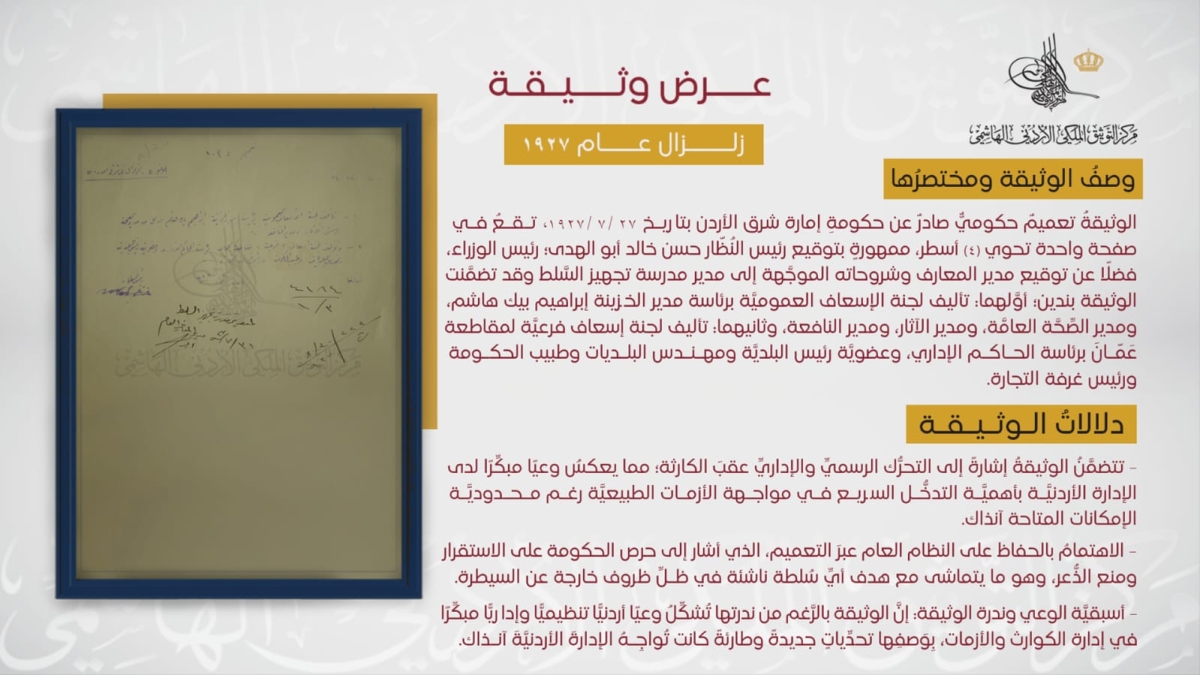 مركز التوثيق الملكي الأردني الهاشمي
عرض وثيقة
زلزال عام ١٩٢٧
وصفُ الوثيقة ومختصرُها
الوثيقةُ تعميمٌ حكوميٌّ صادرٌ عن حكومةِ إمارة شرق الأردن بتاريخ ٢٧ /٧ /١٩٢٧، تقعُ في
صفحة واحدة تحوي (٤) أسطر، ممهورةٍ بتوقيع رئيس النُظّار حسن خالد أبو الهدى؛ رئيس الوزراء،
فضلًا عن توقيع مدير المعارف وشروحاته الموجَّهة إلى مدير مدرسة تجهيز السَّلط وقد تضمَّنت
الوثيقة بندين: أوَّلهما: تأليف لجنة الإسعاف العموميَّة برئاسة مدير الخزينة إبراهيم بيك هاشم،
ومدير الصِّحَّة العامَّة، ومدير الآثار، ومدير النافعة، وثانيهما: تأليف لجنة إسعاف فرعيَّة لمقاطعة
عَمّانَ برئاسة الحاكم الإداري، وعضويَّة رئيس البلديَّة ومهندس البلديات وطبيب الحكومة
ورئيس غرفة التجارة.
دلالاتُ الوثيقة
- تتضمَّنُ الوثيقةُ إشارةً إلى التحرُّك الرسميِّ والإداريِّ عقبَ الكارثة؛ مما يعكسُ وعيًا مبكِّرًا لدى
الإدارة الأردنيَّة بأهميَّة التدخُّل السريع في مواجهة الأزمات الطبيعيَّة رغم محدوديَّة
الإمكانات المتاحة آنذاك.
- الاهتمامُ بالحفاظ على النظام العام عبرَ التعميم، الذي أشار إلى حرص الحكومة على الاستقرار
ومنع الذُّعر، وهو ما يتماشى مع هدف أيِّ سُلطة ناشئة في ظلِّ ظروف خارجة عن السيطرة.
- أسبقيَّة الوعي وندرة الوثيقة: إنَّ الوثيقة بالرَّغم من ندرتها تُشكِّلُ وعيا أردنيًّا تنظيميًّا وإداريًّا مبكِّرًا
في إدارة الكوارث والأزمات، بِوَصفِها تحدِّياتٍ جديدةً وطارئةً كانت تُواجِهُ الإدارةَ الأردنيَّةَ آنذاك.